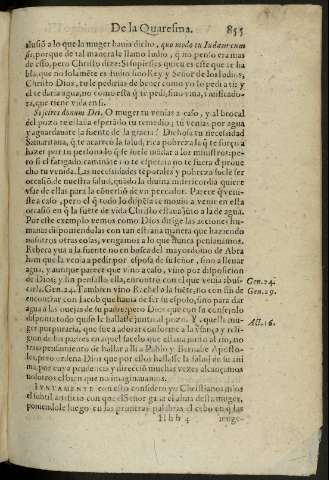 De la Quaresma. 855
alusió a lo que la muger hauia dicho, quo modo tu Iudæus cum
sis, porque de tal manera le llamo Iudio, q̃ no penso era mas
de esso, pero Christo dize: Si supiesses quien es este que te ha
bla, que no solaméte es Iudio sino Rey y Señor de los Iudios,
Christo Dios, tu le pedirias de beuer como yo lo pedi a ti: y
el te daria agua, no como esta q̃ te pedi, sino viua, viuificado-
ra, que tiene vida en si.
Si scires donum Dei. O muger tu venias a caso, y al brocal
del pozo te estaua esperádo tu remedio; tu venias por agua
y aguardauate la fuente de la gracia! Dichosa tu necessidad
Samaritana, q̃ te acarreo la salud, rica pobreza la q̃ te forço a
hazer por tu persona lo q̃ se suele mádar a los ministros: pe-
ro si el fatigado caminãte no te espera no te fuera d' proue
cho tu venida. Las necessidades téporales y pobreza suele ser
occasió de nuestra salud, quádo la diuina misericordia quiere
vsar de ellas para la cõuersió de vn pecador. Parece q̃ venis-
te a caso, pero el q̃ todo lo dispõe te mouio a venir en esta
occasió en q̃ la fuéte de vida Christo estaua júto a la de agua.
Por este exemplo vemos como Dios dirige las acciones hu-
manas disponiendolas con tan estraña manera que haziendo
nosotros otras cosas, vengamos a lo que nunca pensauamos.
Rebeca yua a la fuente no en busca del mayordomo de Abra
ham que la venia a pedir por esposa de su señor, sino a lleuar
agua, y aunque parece que vino a caso, vino por disposicion
de Dios; y sin pensarlo ella, encontrò con el que venia abus-
carla. Gen. 24. Tambien vino Rachel a la fuéte, no con fin de
encontrar con Iacob que hauia de ser su esposo, sino para dar
agua a las ouejas de su padre, pero Dios que con su consejo
disponia todo quiso le hallasse junto al pozo. Y aquella mu-
ger purpuraria, que fue a adorar conforme a la vsança y reli-
gion de sus padres en aquel sacelo que estaua junto al rio, no
tras pensamiento de hallar alli a Pablo y Bernabe Aposto-
les, pero ordena Dios que por ellos hallasse la salud de su ani
ma, por cuya prudencia y direcció muchas vezes alcançamos
nosotros el bien que no imaginauamos.
IVNTAMENTE con esto considero yo Christianos mios
el subtil artificio con que el Señor gana el alma desta muger,
poniendole luego en las primeras palabras el cebo en q̃ las
Gen. 24.
Gen. 29.
Act. 16.
Hhh 4 muge-